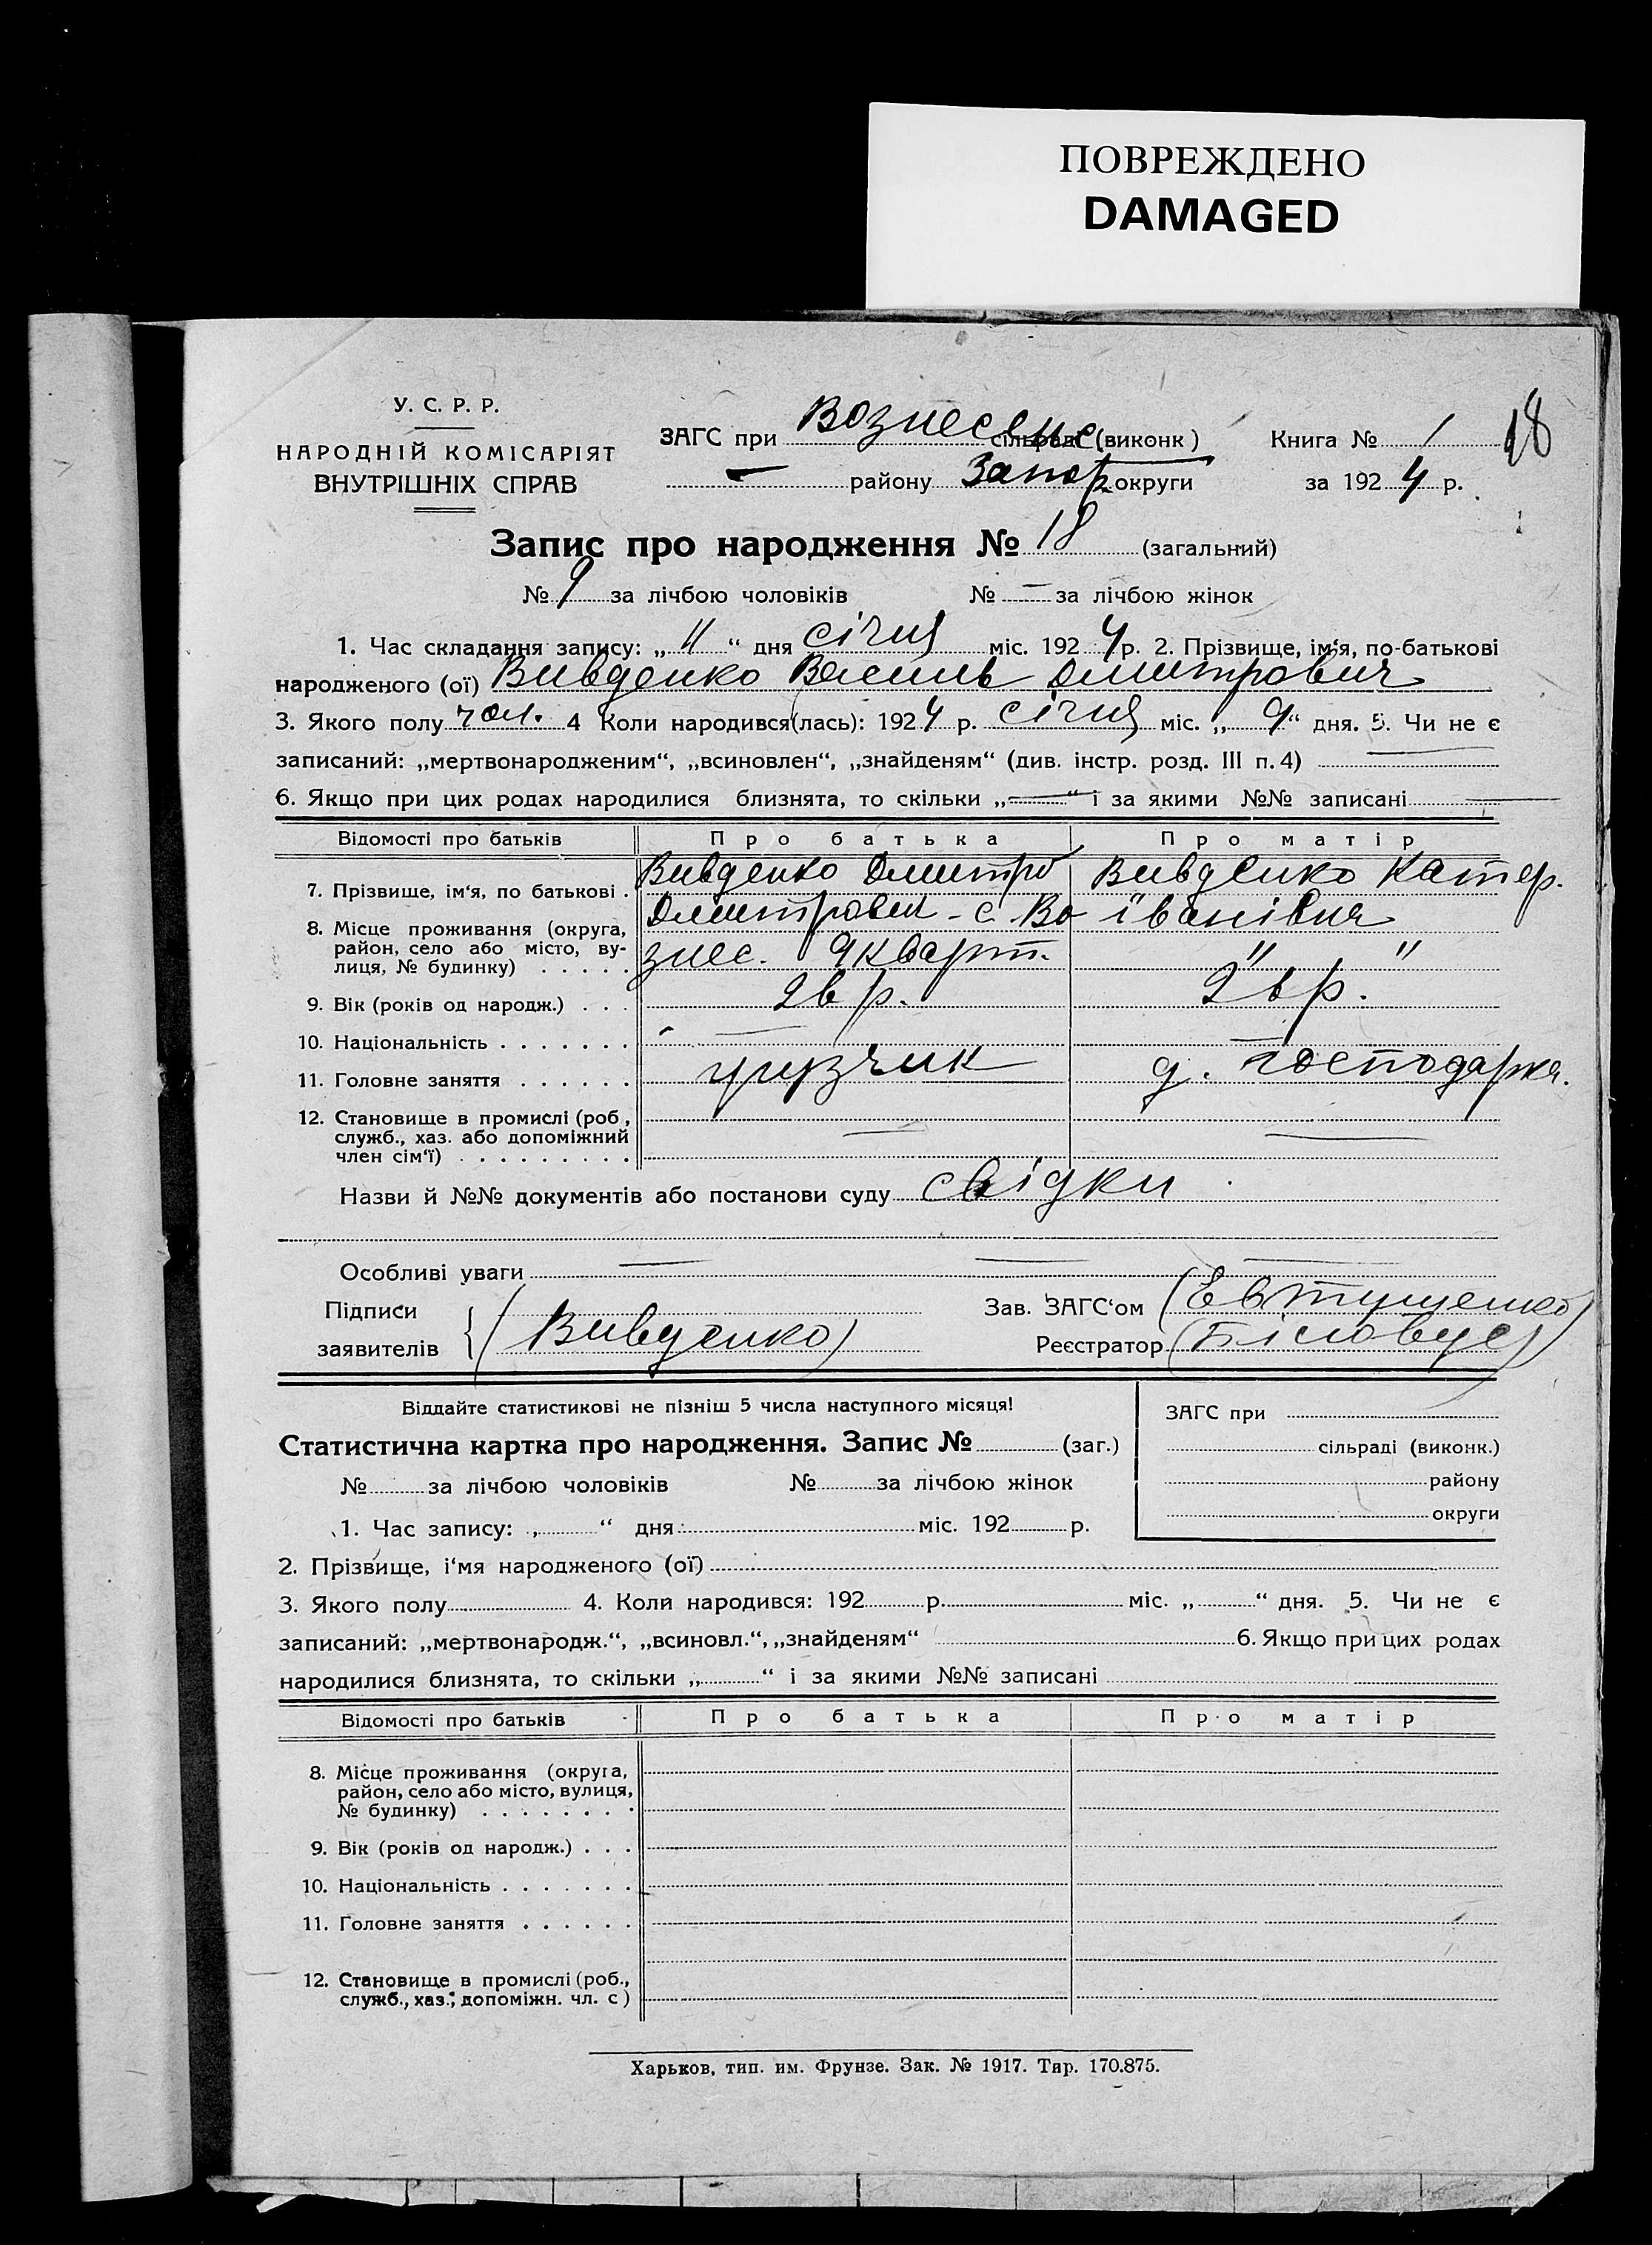 ПОВРЕЖДЕНО
DAMAGED
У. С. Р. Р.
НАРОДНІЙ КОМІСАРІЯТ
ВНУТРІШНІХ СПРАВ
ЗАГС при Вознесенс сільраді (виконк)
району Запор. округи
Книга № 1
18
за 1924 р.
Запис про народження № 18 (загальний)
№ 9 за лічбою чоловіків № — за лічбою жінок
1. Час складання запису: „11“ дня січня міс. 1924 р. 2. Прізвище, ім‘я, по-батькові
народженого (ої) Вивденко Василь Дмитрович
3. Якого полу чол. 4 Коли народився(лась): 1924 р. січня міс. „9“ дня. 5. Чи не є
записаний: „мертвонародженим“, „всиновлен“, „знайденям“ (див. інстр. розд. III п. 4) —
6. Якщо при цих родах народилися близнята, то скільки „—“ і за якими №№ записані —
Відомості про батьків Про батька Про матір
7. Прізвище, ім‘я, по батькові . Вивденко Дмитро Вивденко Катер.
Дмитрович - с. Во іванівна
8. Місце проживання (округа, район, село або місто, вулиця, № будинку) . . . . . знес. 9 кварт. " "
9. Вік (років од народж.) . . . 2в р. 2в р.
10. Національність . . . . . . . — —
11. Головне заняття . . . . . . грузчик д. господарка.
12. Становище в промислі (роб., служб., хаз. або допоміжний член сім‘ї) . . . . . . . . . — —
Назви й №№ документів або постанови суду свідки
Особливі уваги — — —
Підписи
заявителів (Вивденко)
Зав. ЗАГС‘ом (Евтушенко)
Реєстратор (Біловус)
Віддайте статистикові не пізніш 5 числа наступного місяця!
Статистична картка про народження. Запис № (заг.)
№ за лічбою чоловіків № за лічбою жінок
1. Час запису: „ “ дня міс. 192 р.
ЗАГС при
сільраді (виконк.)
району
округи
2. Прізвище, і‘мя народженого (ої)
3. Якого полу 4. Коли народився: 192 р. міс. „ “ дня. 5. Чи не є
записаний: „мертвонародж.“, „всиновл.“, „знайденям“ 6. Якщо при цих родах
народилися близнята, то скільки „ “ і за якими №№ записані
Відомості про батьків Про батька Про матір
8. Місце проживання (округа,
район, село або місто, вулиця,
№ будинку) . . . . . . . .
9. Вік (років од народж.) . . .
10. Національність . . . . . . .
11. Головне заняття . . . . . .
12. Становище в промислі (роб.,
служб., хаз., допоміжн. чл. с)
Харьков, тип. им. Фрунзе. Зак. № 1917. Тир. 170.875.